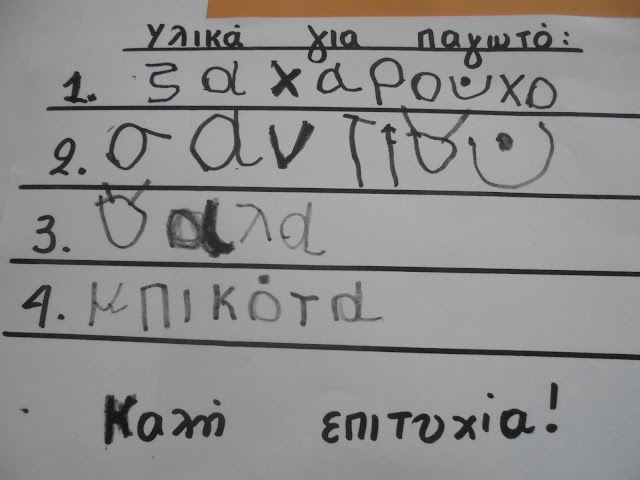 Υλικά για παγωτό:
1. ζαχαρούχο
2. σαντιγύ
3. γαλα
4. μπικότα
Καλή επιτυχία!